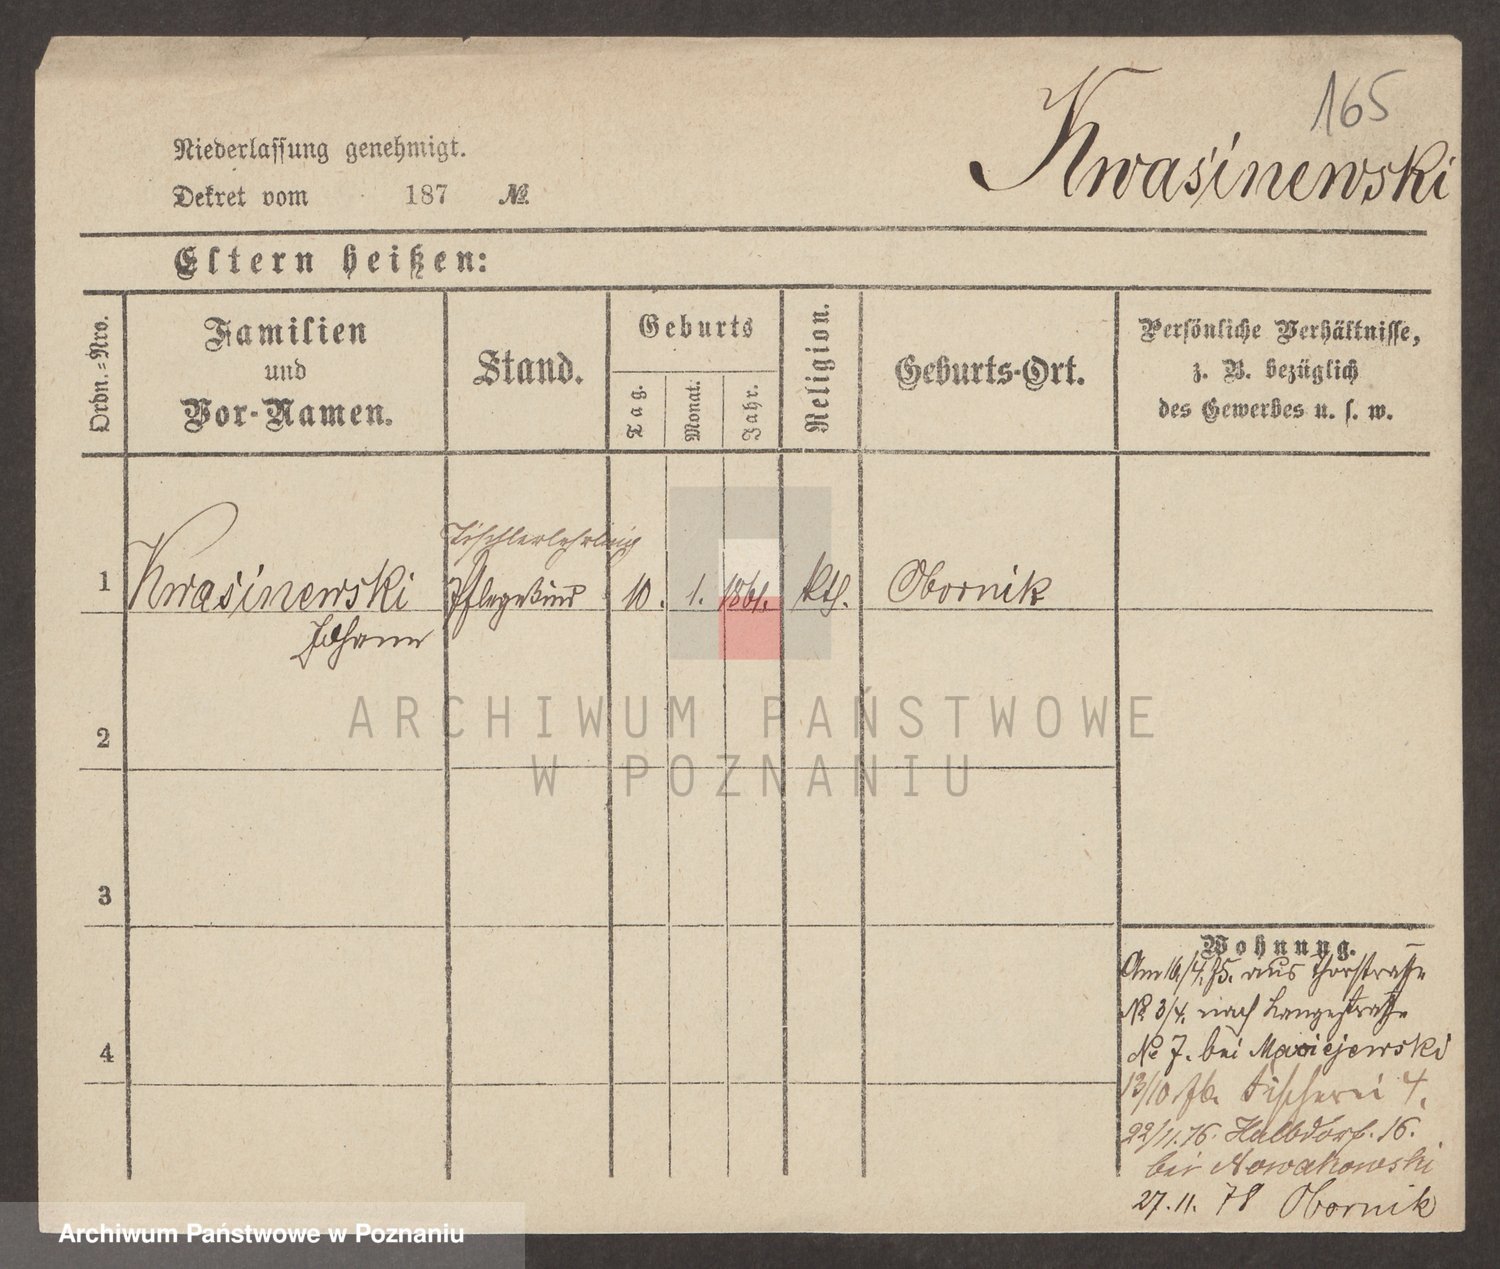 165
Kwaśinewski
Niederlassung genehmigt.
Dekret vom 187 №
Eltern heißen:
Ordn.-Nro.
Familien
und
Vor-Namen.
Stand.
Geburts
Tag.
Monat.
Jahr.
Religion.
Geburts-Ort.
Persönliche Verhältnisse,
z. B. bezüglich
des Gewerbes u. s. w.
Tischlerlehrling
1 Kwaśinewski Pflegekind 10. 1. 1861. kth. Obornik
Johann
2
3
4
Wohnung.
Am 16/4.75. aus Thorstraße
№ 3/4. nach Langestraße
№ 7. bei Maciejewski
13/10 76. Fischerei 4.
22/11.76. Halbdorf. 16.
bei Nowakowski
27.11. 78 Obornik
ARCHIWUM PAŃSTWOWE
W POZNANIU
Archiwum Państwowe w Poznaniu